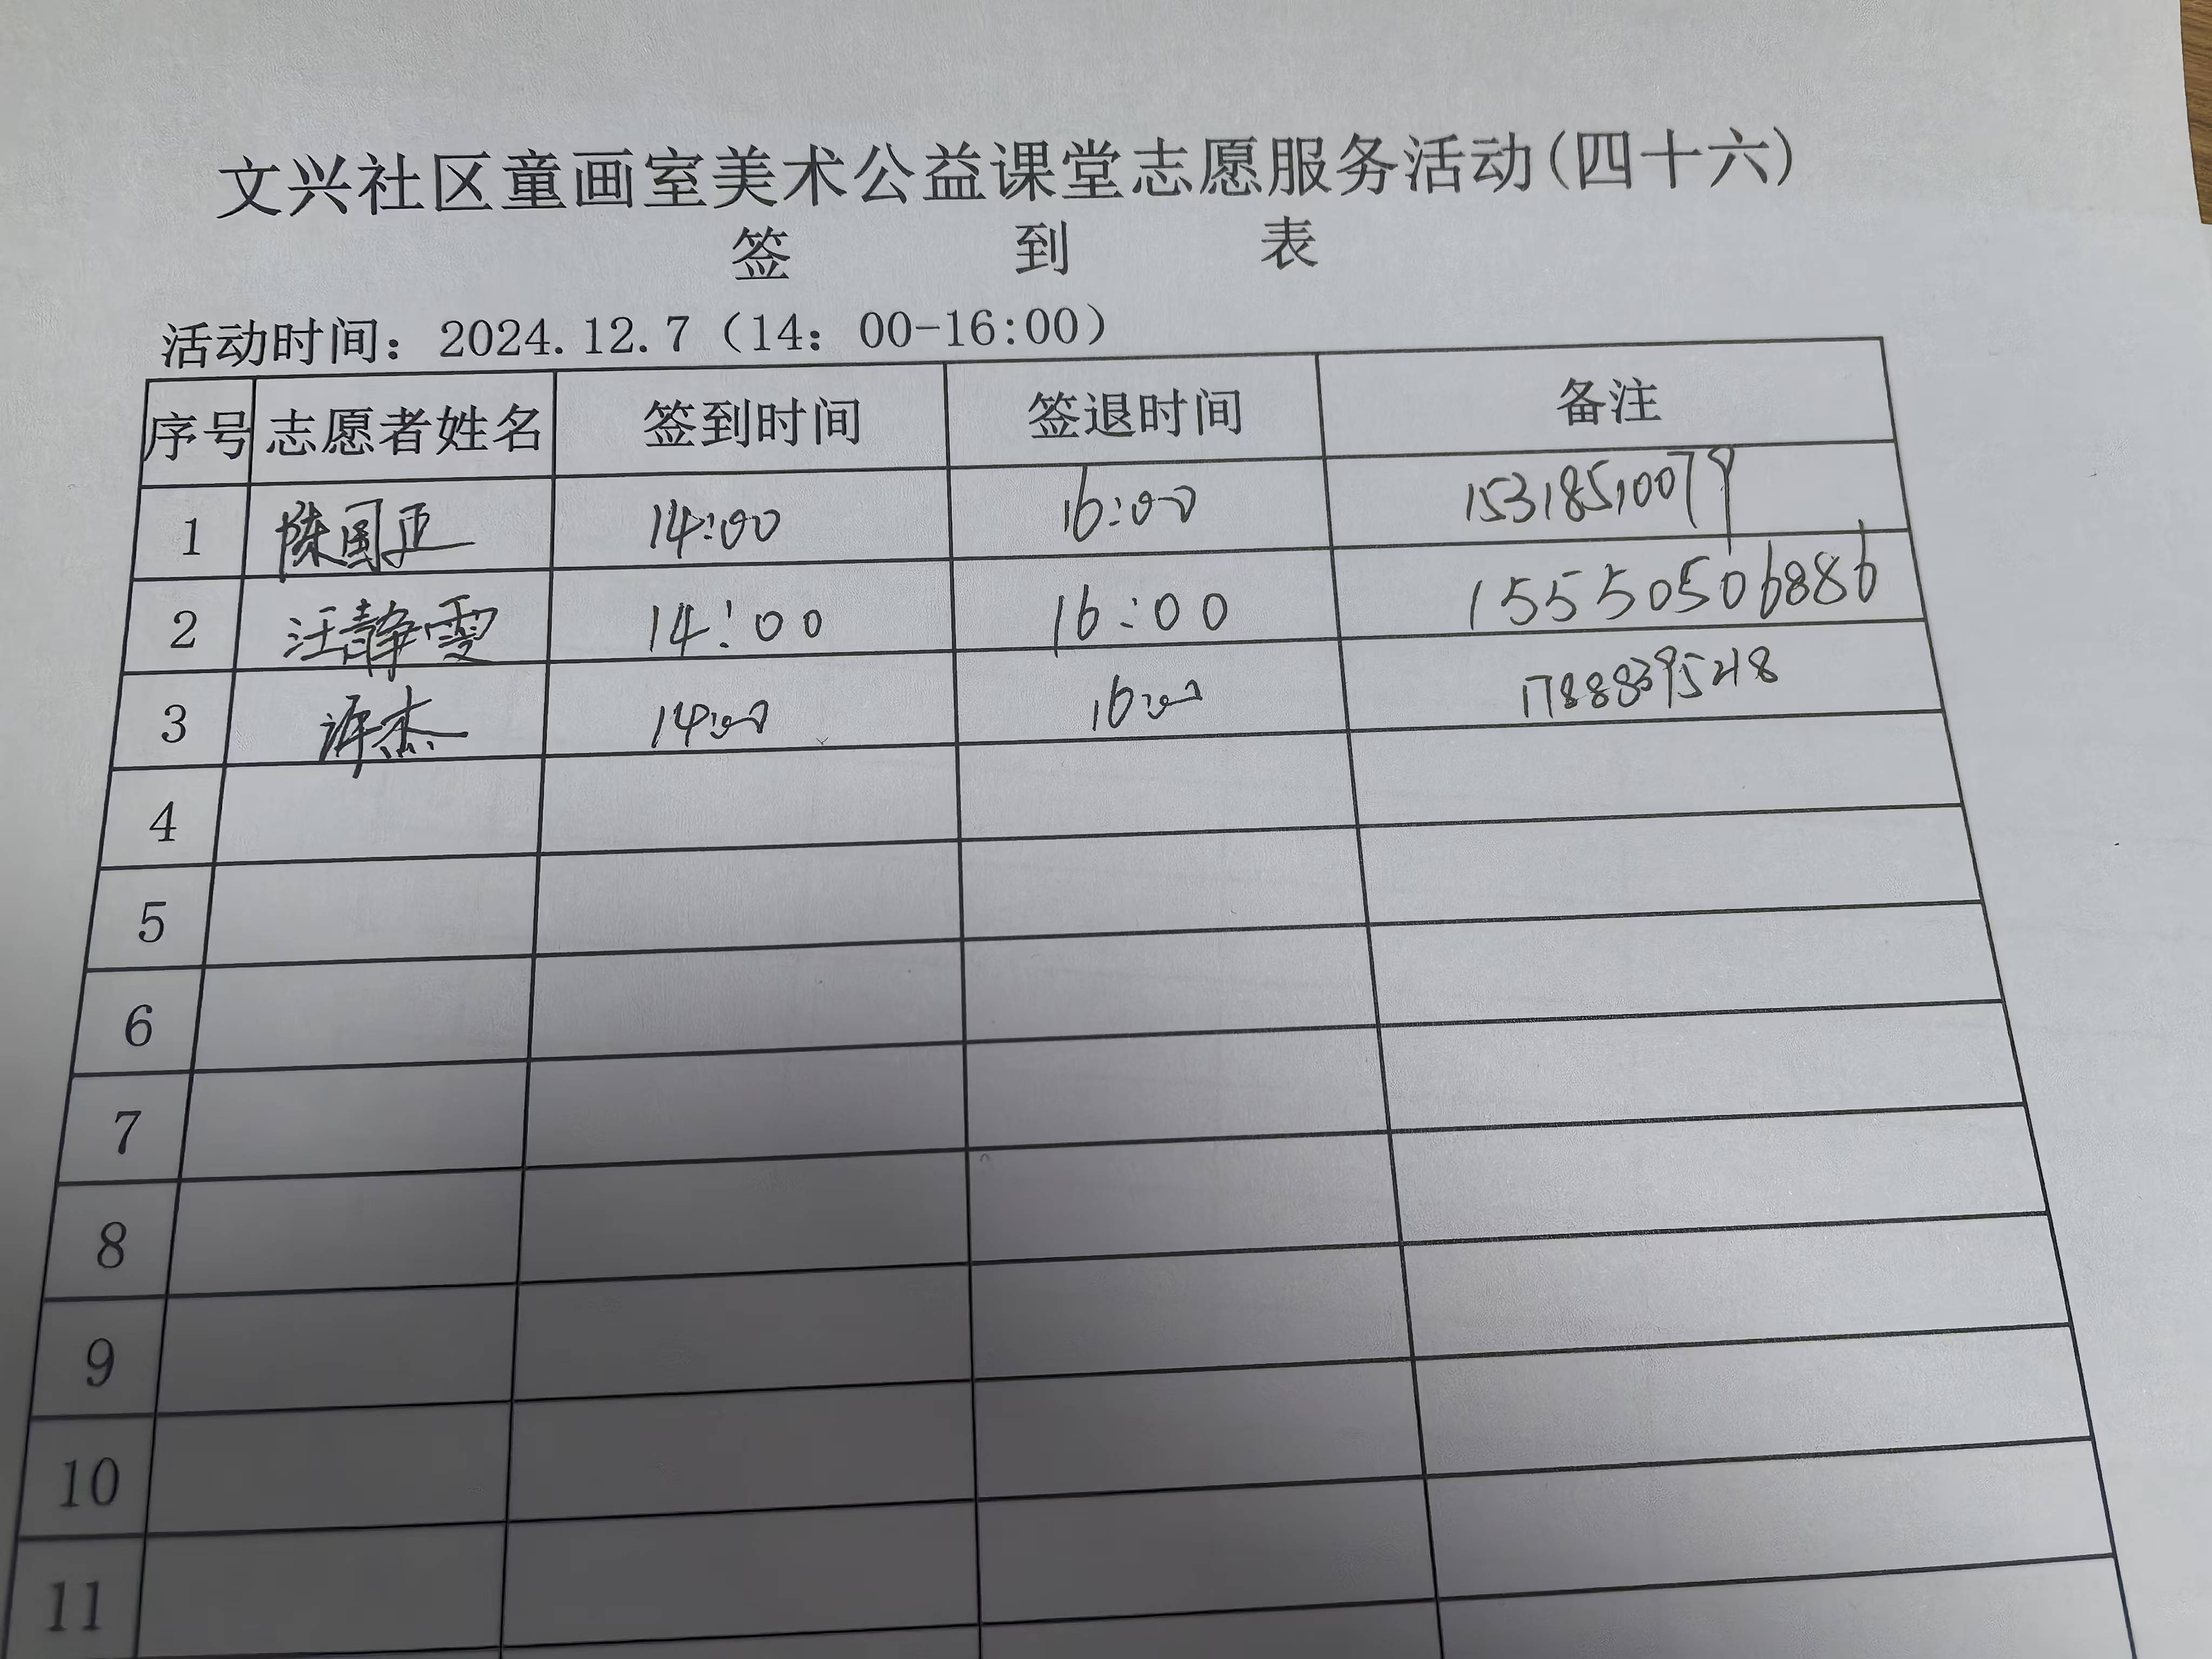 文兴社区童画室美术公益课堂志愿服务活动(四十六)
签 到 表
活动时间：2024.12.7（14：00-16:00）
序号 志愿者姓名 签到时间 签退时间 备注
1 陈国正 14:00 16:00 15318510079
2 汪静雯 14:00 16:00 15550506886
3 许杰 14:00 16:00
4
5
6
7
8
9
10
11